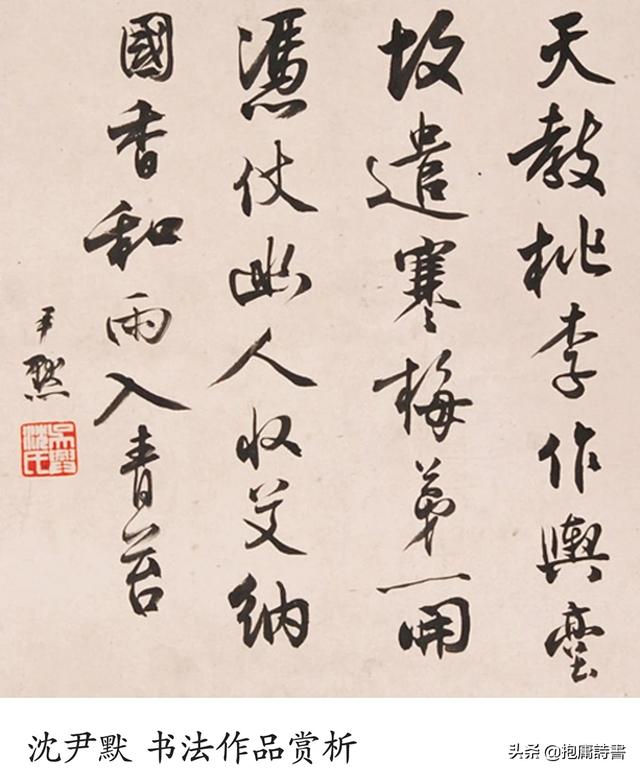 天教桃李作輿臺
故遣寒梅第一開
憑仗幽人收艾納
國香和雨入青苔
尹默
吳興沈氏
沈尹默 书法作品赏析
头条 @抱庸詩書